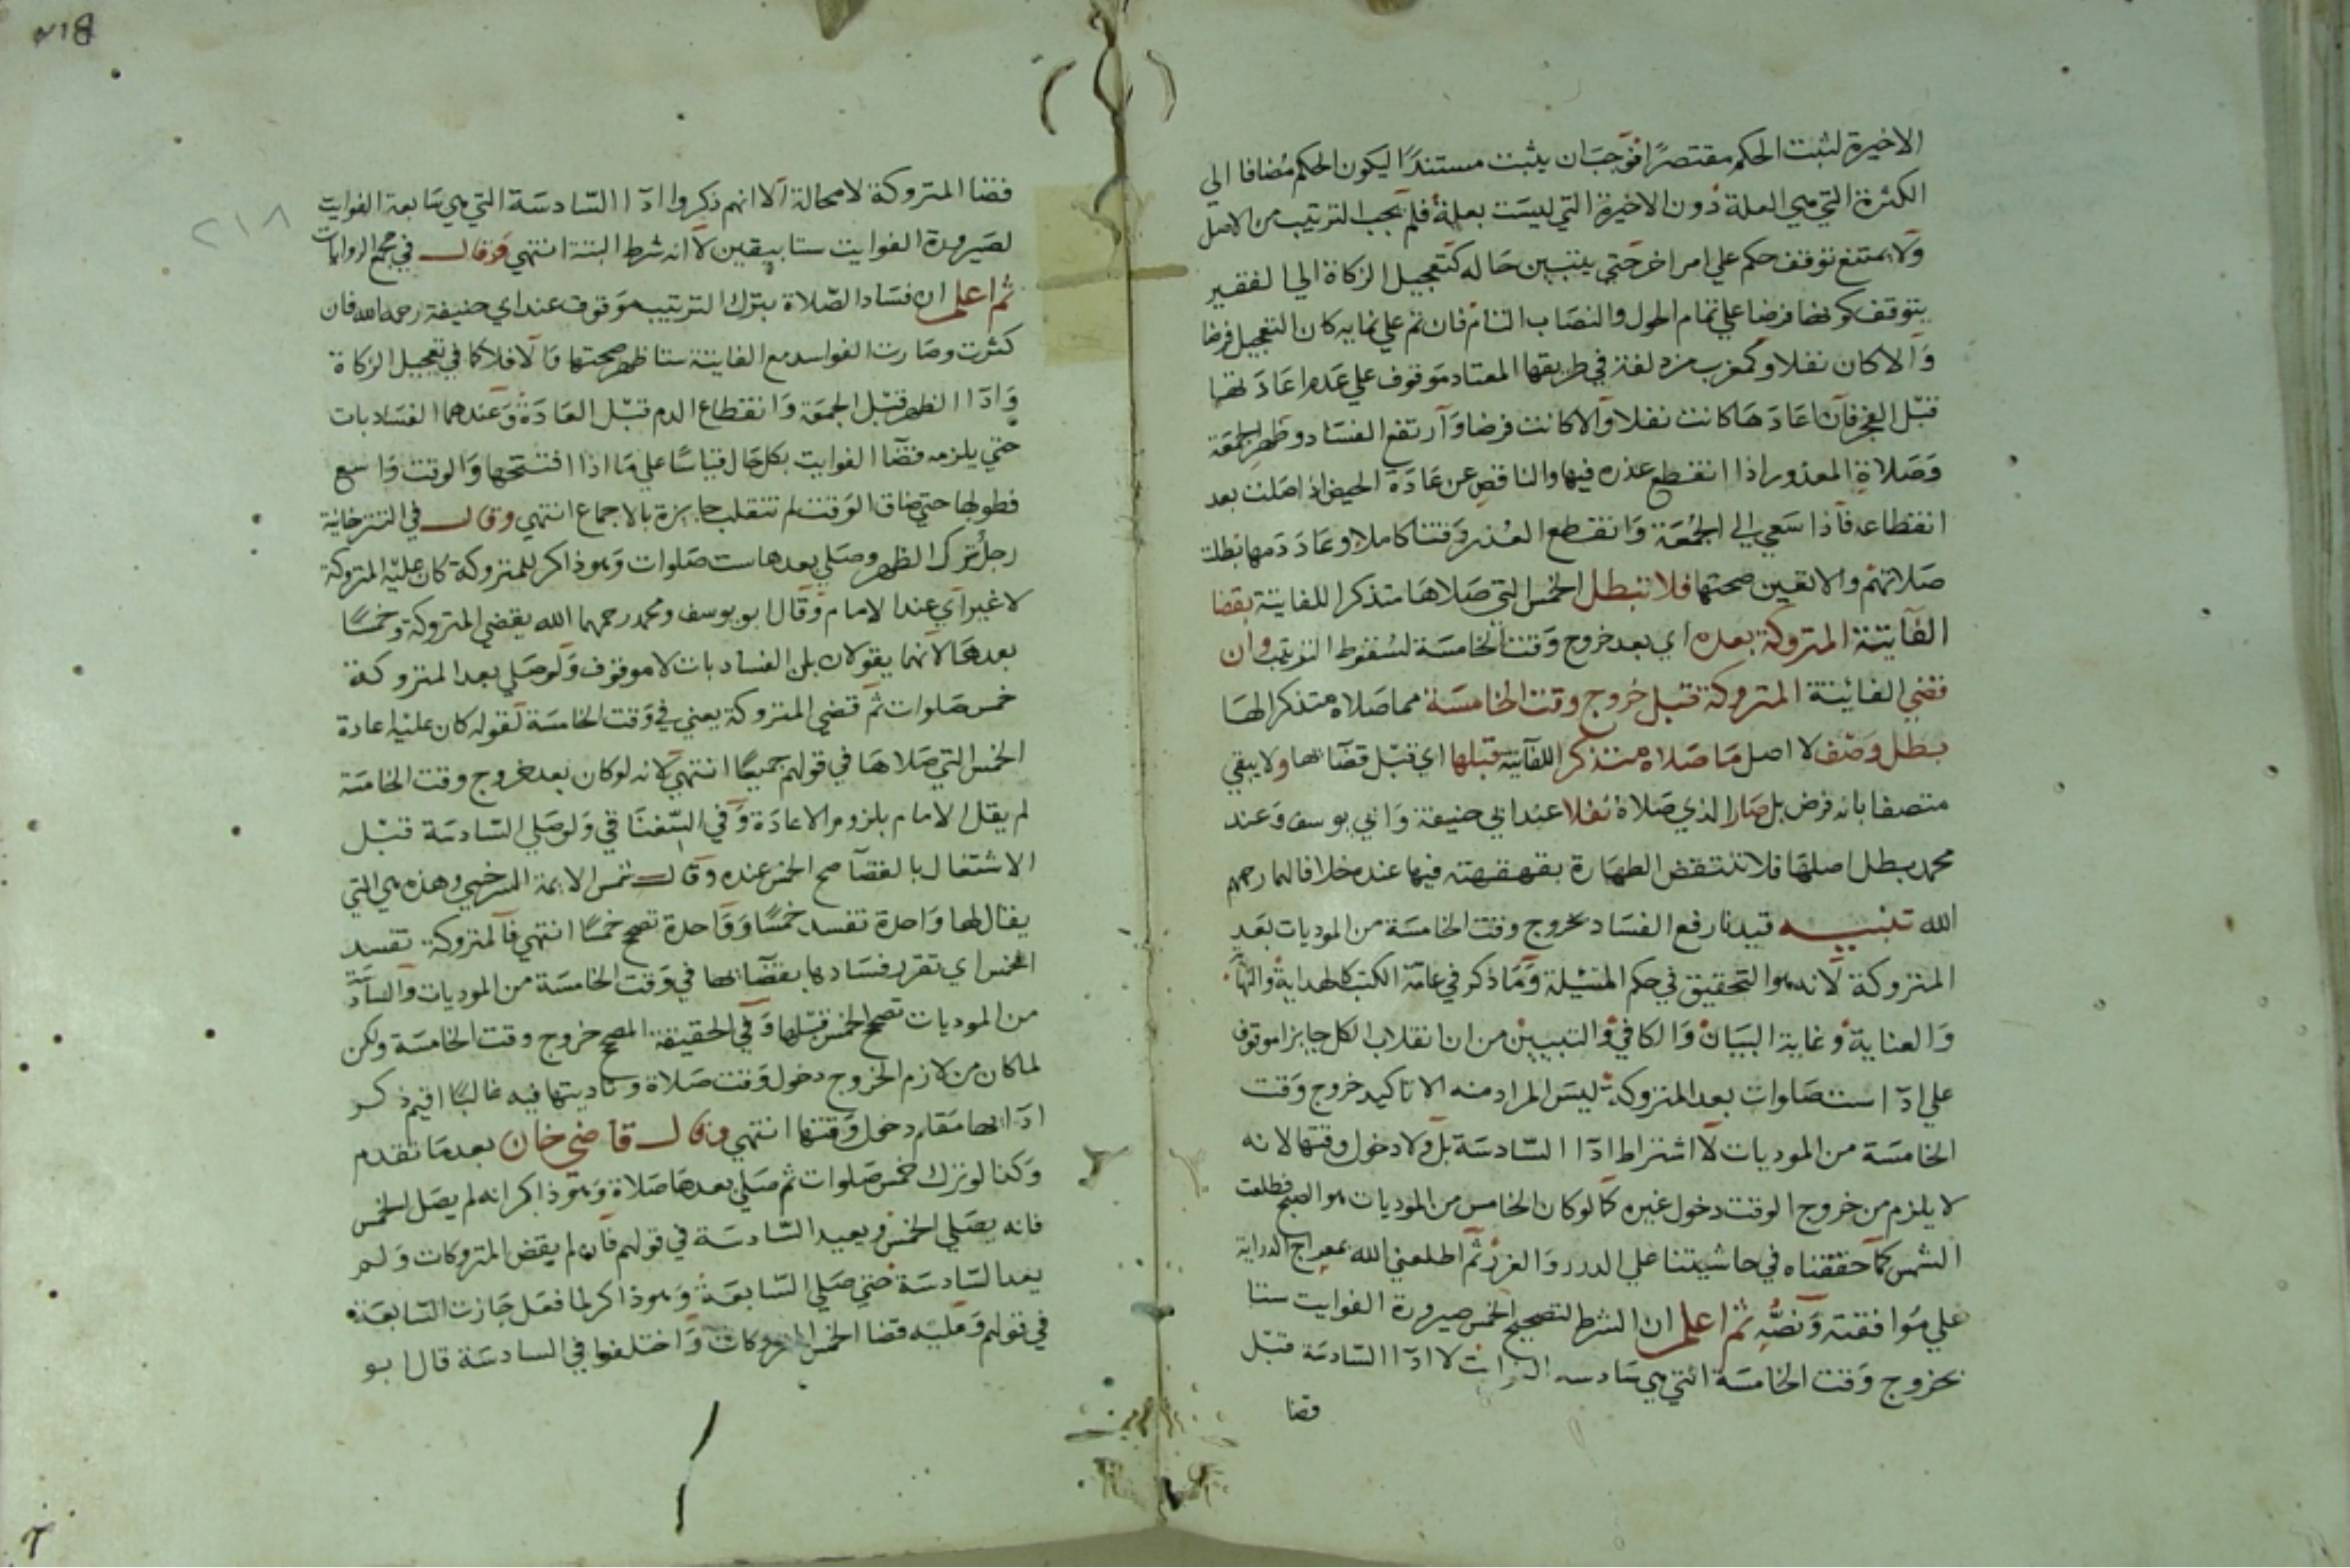 الاخيرة لثبت الحكم مقتصرا فوجب ان يثبت مستندا ليكون الحكم مضافا الي
الكثرة التي هي العلة دون الاخيرة التي ليست بعلة فلم يجب الترتيب من الاصل
ولا يمتنع توقف حكم علي امر اخر حتي يتبين حاله كتعجيل الزكاة الي الفقير
يتوقف كونها فرضا علي تمام الحول والنصاب التام فان تم علي نمايه كان التعجيل فرضا
والا كان نفلا وكمغرب مزدلفة في طريقها المعتاد موقوف علي عدم اعادتها
قبل الفجر فان اعادها كانت نفلا والا كانت فرضا وارتفع الفساد وظهر الجمعة
وصلاة المعذور اذا انقطع عذره فيها والناقص عن عادة الحيض اذا صلت بعد
انقطاعه فاذا سعي الي الجمعة وانقطع العذر وقتا كاملا وعاد دمها بطلت
صلاتهم والا تعين صحتها فلا تبطل الخمس التي صلاها متذكرا للفايتة بقضا
الفايتة المتروكة بعده اي بعد خروج وقت الخامسة لسقوط الترتيب وان
قضي الفائتة المتروكة قبل خروج وقت الخامسة مما صلاه متذكرا لها
بطل وصف لا اصل ما صلاه متذكرا للفايتة قبلها اي قبل قضائها ولا يبقي
متصفا بانه فرض بل صار الذي صلاه نفلا عند ابي حنيفة وابي يوسف وعند
محمد يبطل اصلها فلا تنتقض الطهارة بقهقهته فيها عنده خلافا لهما رحمهم
الله تنبيه قيدنا رفع الفساد بخروج وقت الخامسة من الموديات بعد
المتروكة لانه هو التحقيق في حكم المسئلة وما ذكر في عامة الكتب كالهداية والنهاية
والعناية وغاية البيان والكافي والتبيين من ان انقلاب الكل جايزا موقوف
علي ادا ست صلوات بعد المتروكة ليس المراد منه الا تاكيد خروج وقت
الخامسة من الموديات لا اشتراط ادا السادسة بل ولا دخول وقتها لانه
لا يلزم من خروج الوقت دخول غيره كما لو كان الخامس من الموديات هو الصبح فطلعت
الشمس كما حققناه في حاشيتنا علي الدرر والغرر ثم اطلعني الله بمعراج الدراية
علي موافقته ونصه ثم اعلم ان الشرط لتصحيح الخمس صيرورة الفوايت ستا
بخروج وقت الخامسة التي هي سادسة الفوايت لا ادا السادسة قبل
قضا
٢١٨
قضا المتروكة لا محالة الا انهم ذكروا ادا السادسة التي هي سابعة الفوايت
لصيرورة الفوايت ستا بيقين لا انه شرط البتة انتهي وقال في مجمع الروايات
ثم اعلم ان فساد الصلاة بترك الترتيب موقوف عند ابي حنيفة رحمه الله فان
كثرت وصارت الفواسد مع الفايتة ستا ظهر صحتها والا فلا كما في تعجيل الزكاة
وادا الظهر قبل الجمعة وانقطاع الدم قبل العادة وعندهما الفساد بات
حتي يلزمه قضا الفوايت بكل حال قياسا علي ما اذا افتتحها والوقت واسع
فطولها حتي ضاق الوقت لم تنقلب جايزة بالاجماع انتهي وقال في التترخانية
رجل ترك الظهر وصلي بعدها ست صلوات وهو ذاكر للمتروكة كان عليه المتروكة
لا غير اي عند الامام وقال ابو يوسف ومحمد رحمهما الله يقضي المتروكة وخمسا
بعدها لانهما يقولان بان الفساد بات لا موقوف ولو صلي بعد المتروكة
خمس صلوات ثم قضي المتروكة يعني في وقت الخامسة لقوله كان عليه اعادة
الخمس التي صلاها في قولهم جميعا انتهي لانه لو كان بعد خروج وقت الخامسة
لم يقل الامام بلزوم الاعادة وفي السغناقي ولو صلي السادسة قبل
الاشتغال بالقضا صح الخمس عنده وقال شمس الايمة السرخسي وهذه هي التي
يقال لها واحدة تفسد خمسا وواحدة تصحح خمسا انتهي فالمتروكة تفسد
الخمس اي تقرر فسادها بقضائها في وقت الخامسة من الموديات والسادسة
من الموديات تصحح الخمس قبلها وفي الحقيقة المصحح خروج وقت الخامسة ولكن
لما كان من لازم الخروج دخول وقت صلاة وتاديتها فيه غالبا اقيم ذكر
ادائها مقام دخول وقتها انتهي وقال قاضي خان بعدما تقدم
وكذا لو ترك خمس صلوات ثم صلي بعدها صلاة وهو ذاكر انه لم يصل الخمس
فانه يصلي الخمس ويعيد السادسة في قولهم فان لم يقض المتروكات ولم
يعد السادسة حتي صلي السابعة وهو ذاكر لما فعل جازت السابعة
في قولهم وعليه قضا الخمس المتروكات واختلفوا في السادسة قال ابو